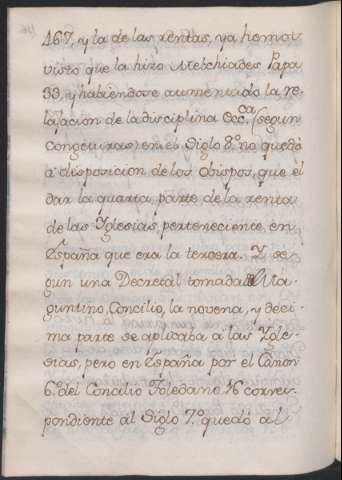 467, y la de las rentas, ya hemos
visto que la hizo Melchiades Papa
33, y habiendose aumentado la re-
lajacion de la disciplina Ecc.ca (segun
Congeturas) en el Siglo 8.º no quedó
á disposicion de los Obispos, que el
dar la quarta parte de la renta
de las Yglesias, perteneciente en
España que era la tercera. Y se
gun una Decretal tomada
guntino Concilio, la novena, y deci-
ma parte se aplicaba a las Ygle-
sias, pero en España por el Canon
6. del Concilio Toledano 16 corres-
pondiente al Siglo 7.º quedó al